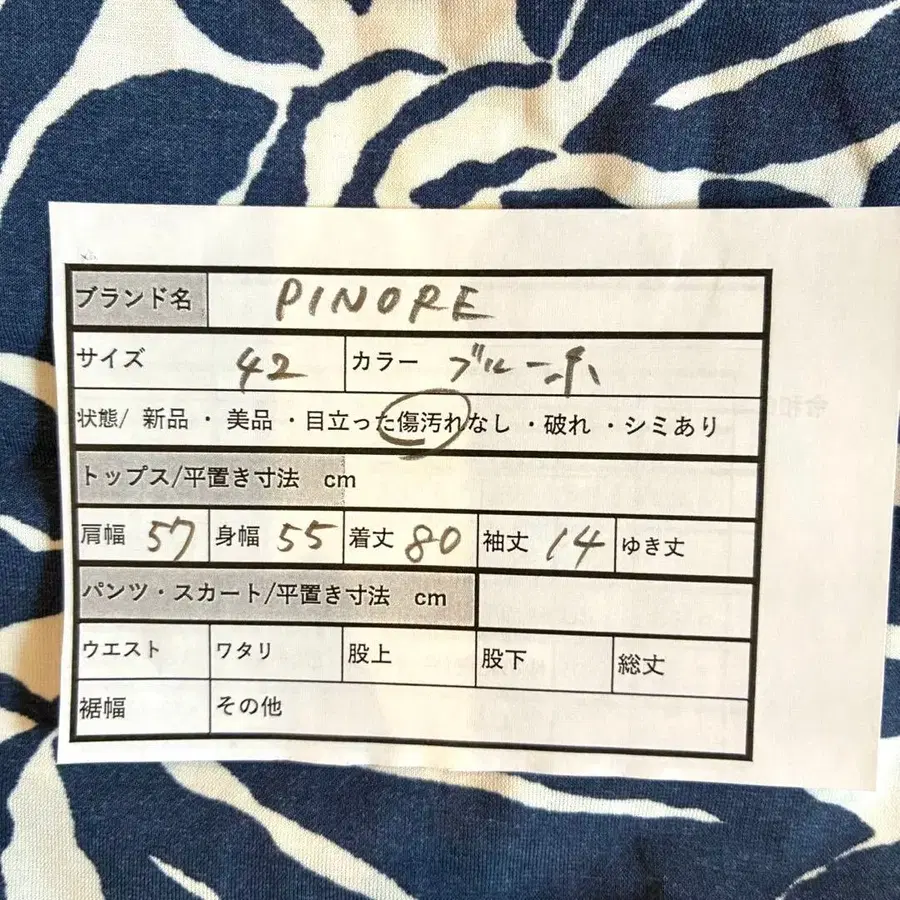 ブランド名 PINORE
サイズ 42 カラー ブルー系
状態/ 新品 ・ 美品 ・目立った傷汚れなし ・破れ ・シミあり
トップス/平置き寸法 cm
肩幅 57 身幅 55 着丈 80 袖丈 14 ゆき丈
パンツ・スカート/平置き寸法 cm
ウエスト ワタリ 股上 股下 総丈
裾幅 その他